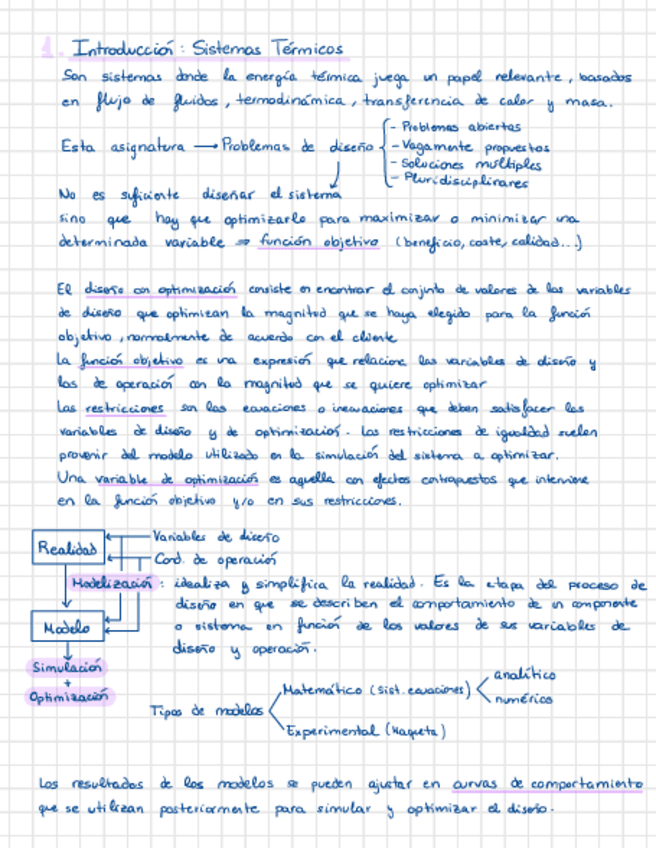 1. Introducción: Sistemas Térmicos
Son sistemas donde la energía térmica juega un papel relevante, basados
en flujo de fluidos, termodinámica, transferencia de calor y masa.
Esta asignatura → Problemas de diseño
- Problemas abiertos
- Vagamente propuestos
- Soluciones múltiples
- Pluridisciplinares
No es suficiente diseñar el sistema
sino que hay que optimizarlo para maximizar o minimizar una
determinada variable ⇒ función objetivo (beneficio, coste, calidad...)
El diseño con optimización consiste en encontrar el conjunto de valores de las variables
de diseño que optimizan la magnitud que se haya elegido para la función
objetivo, normalmente de acuerdo con el cliente
La función objetivo es una expresión que relaciona las variables de diseño y
las de operación con la magnitud que se quiere optimizar
Las restricciones son las ecuaciones o inecuaciones que deben satisfacer las
variables de diseño y de optimización. Las restricciones de igualdad suelen
provenir del modelo utilizado en la simulación del sistema a optimizar.
Una variable de optimización es aquella con efectos contrapuestos que interviene
en la función objetivo y/o en sus restricciones.
Realidad
Variables de diseño
Cond. de operación
Modelización: idealiza y simplifica la realidad. Es la etapa del proceso de
diseño en que se describen el comportamiento de un componente
o sistema en función de los valores de sus variables de
diseño y operación.
Modelo
Simulación
+
Optimización
Tipos de modelos
Matemático (sist. ecuaciones)
analítico
numérico
Experimental (Maqueta)
Los resultados de los modelos se pueden ajustar en curvas de comportamiento
que se utilizan posteriormente para simular y optimizar el diseño.